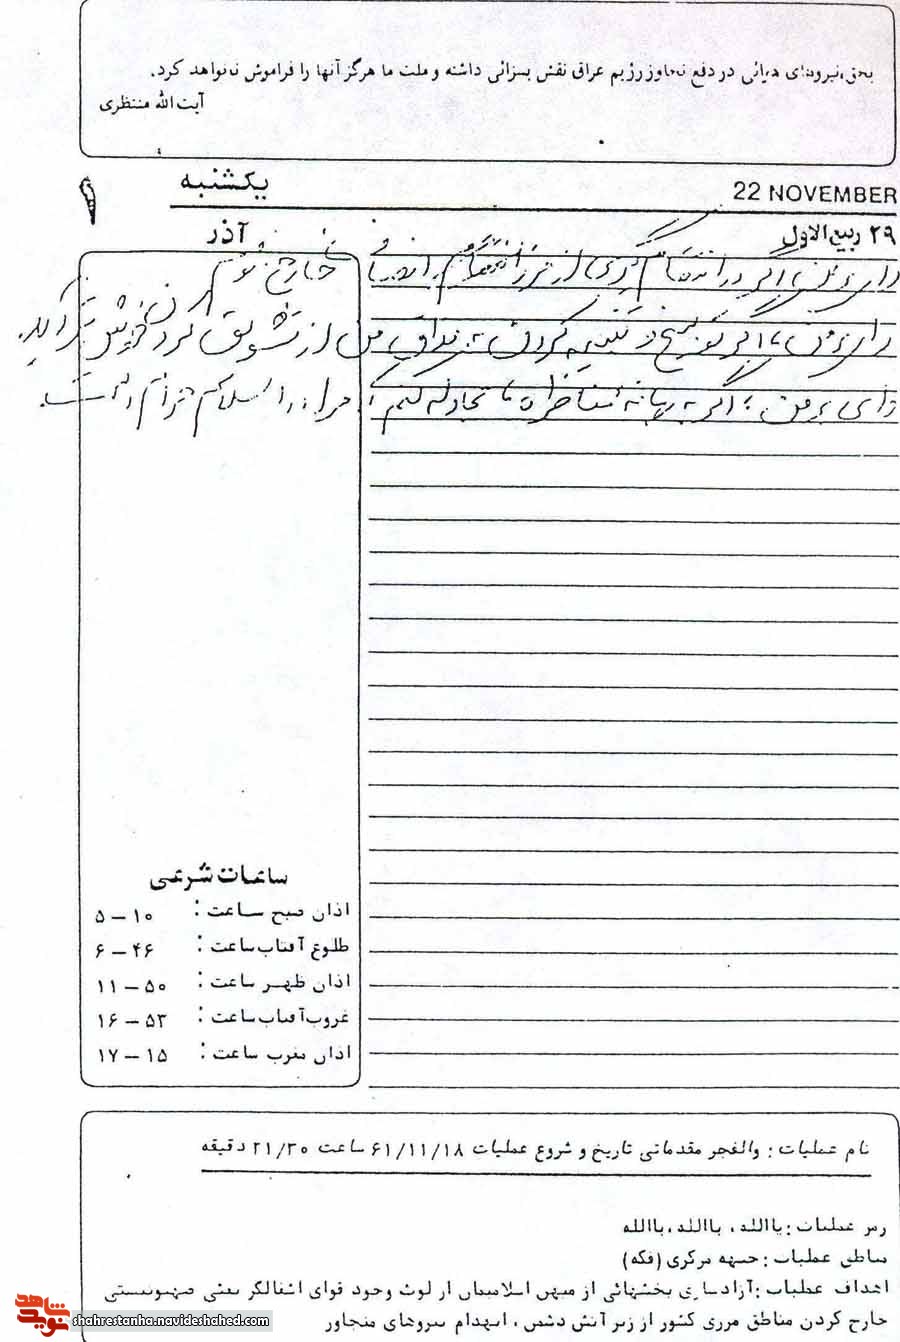 بحق نیروهای هوائی در دفع تجاوز رژیم عراق نقش بسزائی داشته و ملت ما هرگز آنها را فراموش نخواهد کرد.
آیت الله منتظری
22 NOVEMBER
یکشنبه
۱
۲۹ ربیع الاول
آذر
وای بر من اگر در انتقام گیری از مرز خارج شوم
وای بر من اگر توبیخ و تنبیه کردن من از تشویق کردن خویش آید
وای بر من اگر به بهانه مناظره با مجادله کنم مرا اسلام
ساعات شرعی
اذان صبح ساعت : ۱۰ – ۵
طلوع آفتاب ساعت : ۴۶ – ۶
اذان ظهر ساعت : ۵۰ – ۱۱
غروب آفتاب ساعت : ۵۳ – ۱۶
اذان مغرب ساعت : ۱۵ – ۱۷
نام عملیات : والفجر مقدماتی تاریخ و شروع عملیات ۶۱/۱۱/۱۸ ساعت ۲۱/۳۰ دقیقه
رمز عملیات : یاالله، یاالله، یاالله
مناطق عملیات : جبهه مرکزی (فکه)
اهداف عملیات : آزادسازی بخشهائی از میهن اسلامیمان از لوث وجود قوای اشغالگر بعثی صهیونیستی
خارج کردن مناطق مرزی کشور از زیر آتش دشمن ، انهدام نیروهای متجاوز
نوید شاهد
shahrestanha.navideshahed.com